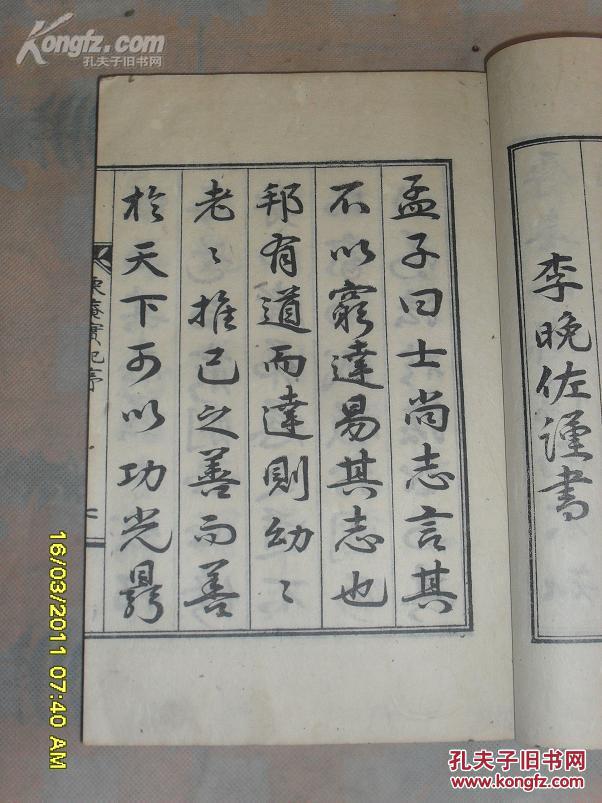 李晚佐謹書
孟子曰士尚志言其
不以窮達易其志也
邦有道而達則幼〻
老〻推己之善而善
於天下可以功光
實記序
Kongfz.com
孔夫子旧书网
16/03/2011 07:40 AM
孔夫子旧书网
www.kongfz.com